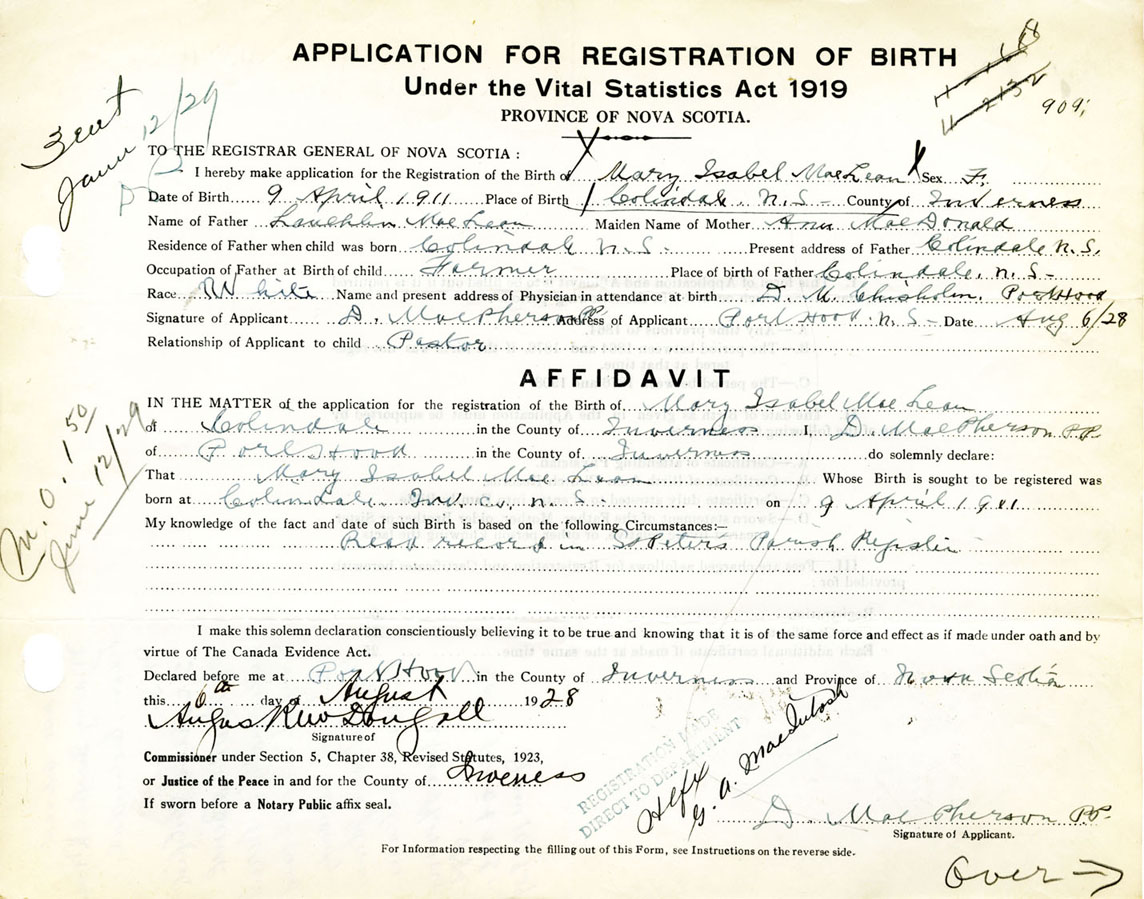 APPLICATION FOR REGISTRATION OF BIRTH
Under the Vital Statistics Act 1919
PROVINCE OF NOVA SCOTIA.
11-2132
909
June 12/29
TO THE REGISTRAR GENERAL OF NOVA SCOTIA :
I hereby make application for the Registration of the Birth of Mary Isabel MacLean Sex F.
Date of Birth 9 April 1911 Place of Birth Colindale, N.S. County of Inverness
Name of Father Lauchlin MacLean Maiden Name of Mother Ann MacDonald
Residence of Father when child was born Colindale N.S. Present address of Father Colindale N.S.
Occupation of Father at Birth of child Farmer Place of birth of Father Colindale, N.S.
Race White Name and present address of Physician in attendance at birth D. M. Chisholm, Port Hood
Signature of Applicant D. MacPherson P.P. Address of Applicant Port Hood N.S. Date Aug 6/28
Relationship of Applicant to child Pastor
AFFIDAVIT
IN THE MATTER of the application for the registration of the Birth of Mary Isabel MacLean
of Colindale in the County of Inverness I, D. MacPherson P.P.
of Port Hood in the County of Inverness do solemnly declare:
That Mary Isabel MacLean Whose Birth is sought to be registered was
born at Colindale Inv. Co. N.S. on 9 April 1911
My knowledge of the fact and date of such Birth is based on the following Circumstances:—
Read record in St Peter's Parish Register
M.O. 1 50
June 12/29
I make this solemn declaration conscientiously believing it to be true and knowing that it is of the same force and effect as if made under oath and by
virtue of The Canada Evidence Act.
Declared before me at Port Hood in the County of Inverness and Province of Nova Scotia
this 6th day of August 1928
Angus R McDougall
Signature of
Commissioner under Section 5, Chapter 38, Revised Statutes, 1923,
or Justice of the Peace in and for the County of Inverness
If sworn before a Notary Public affix seal.
REGISTRATION MADE
DIRECT TO DEPARTMENT
Hlfx
G. A. MacIntosh
D. MacPherson P.P.
Signature of Applicant.
For Information respecting the filling out of this Form, see Instructions on the reverse side.
Over →